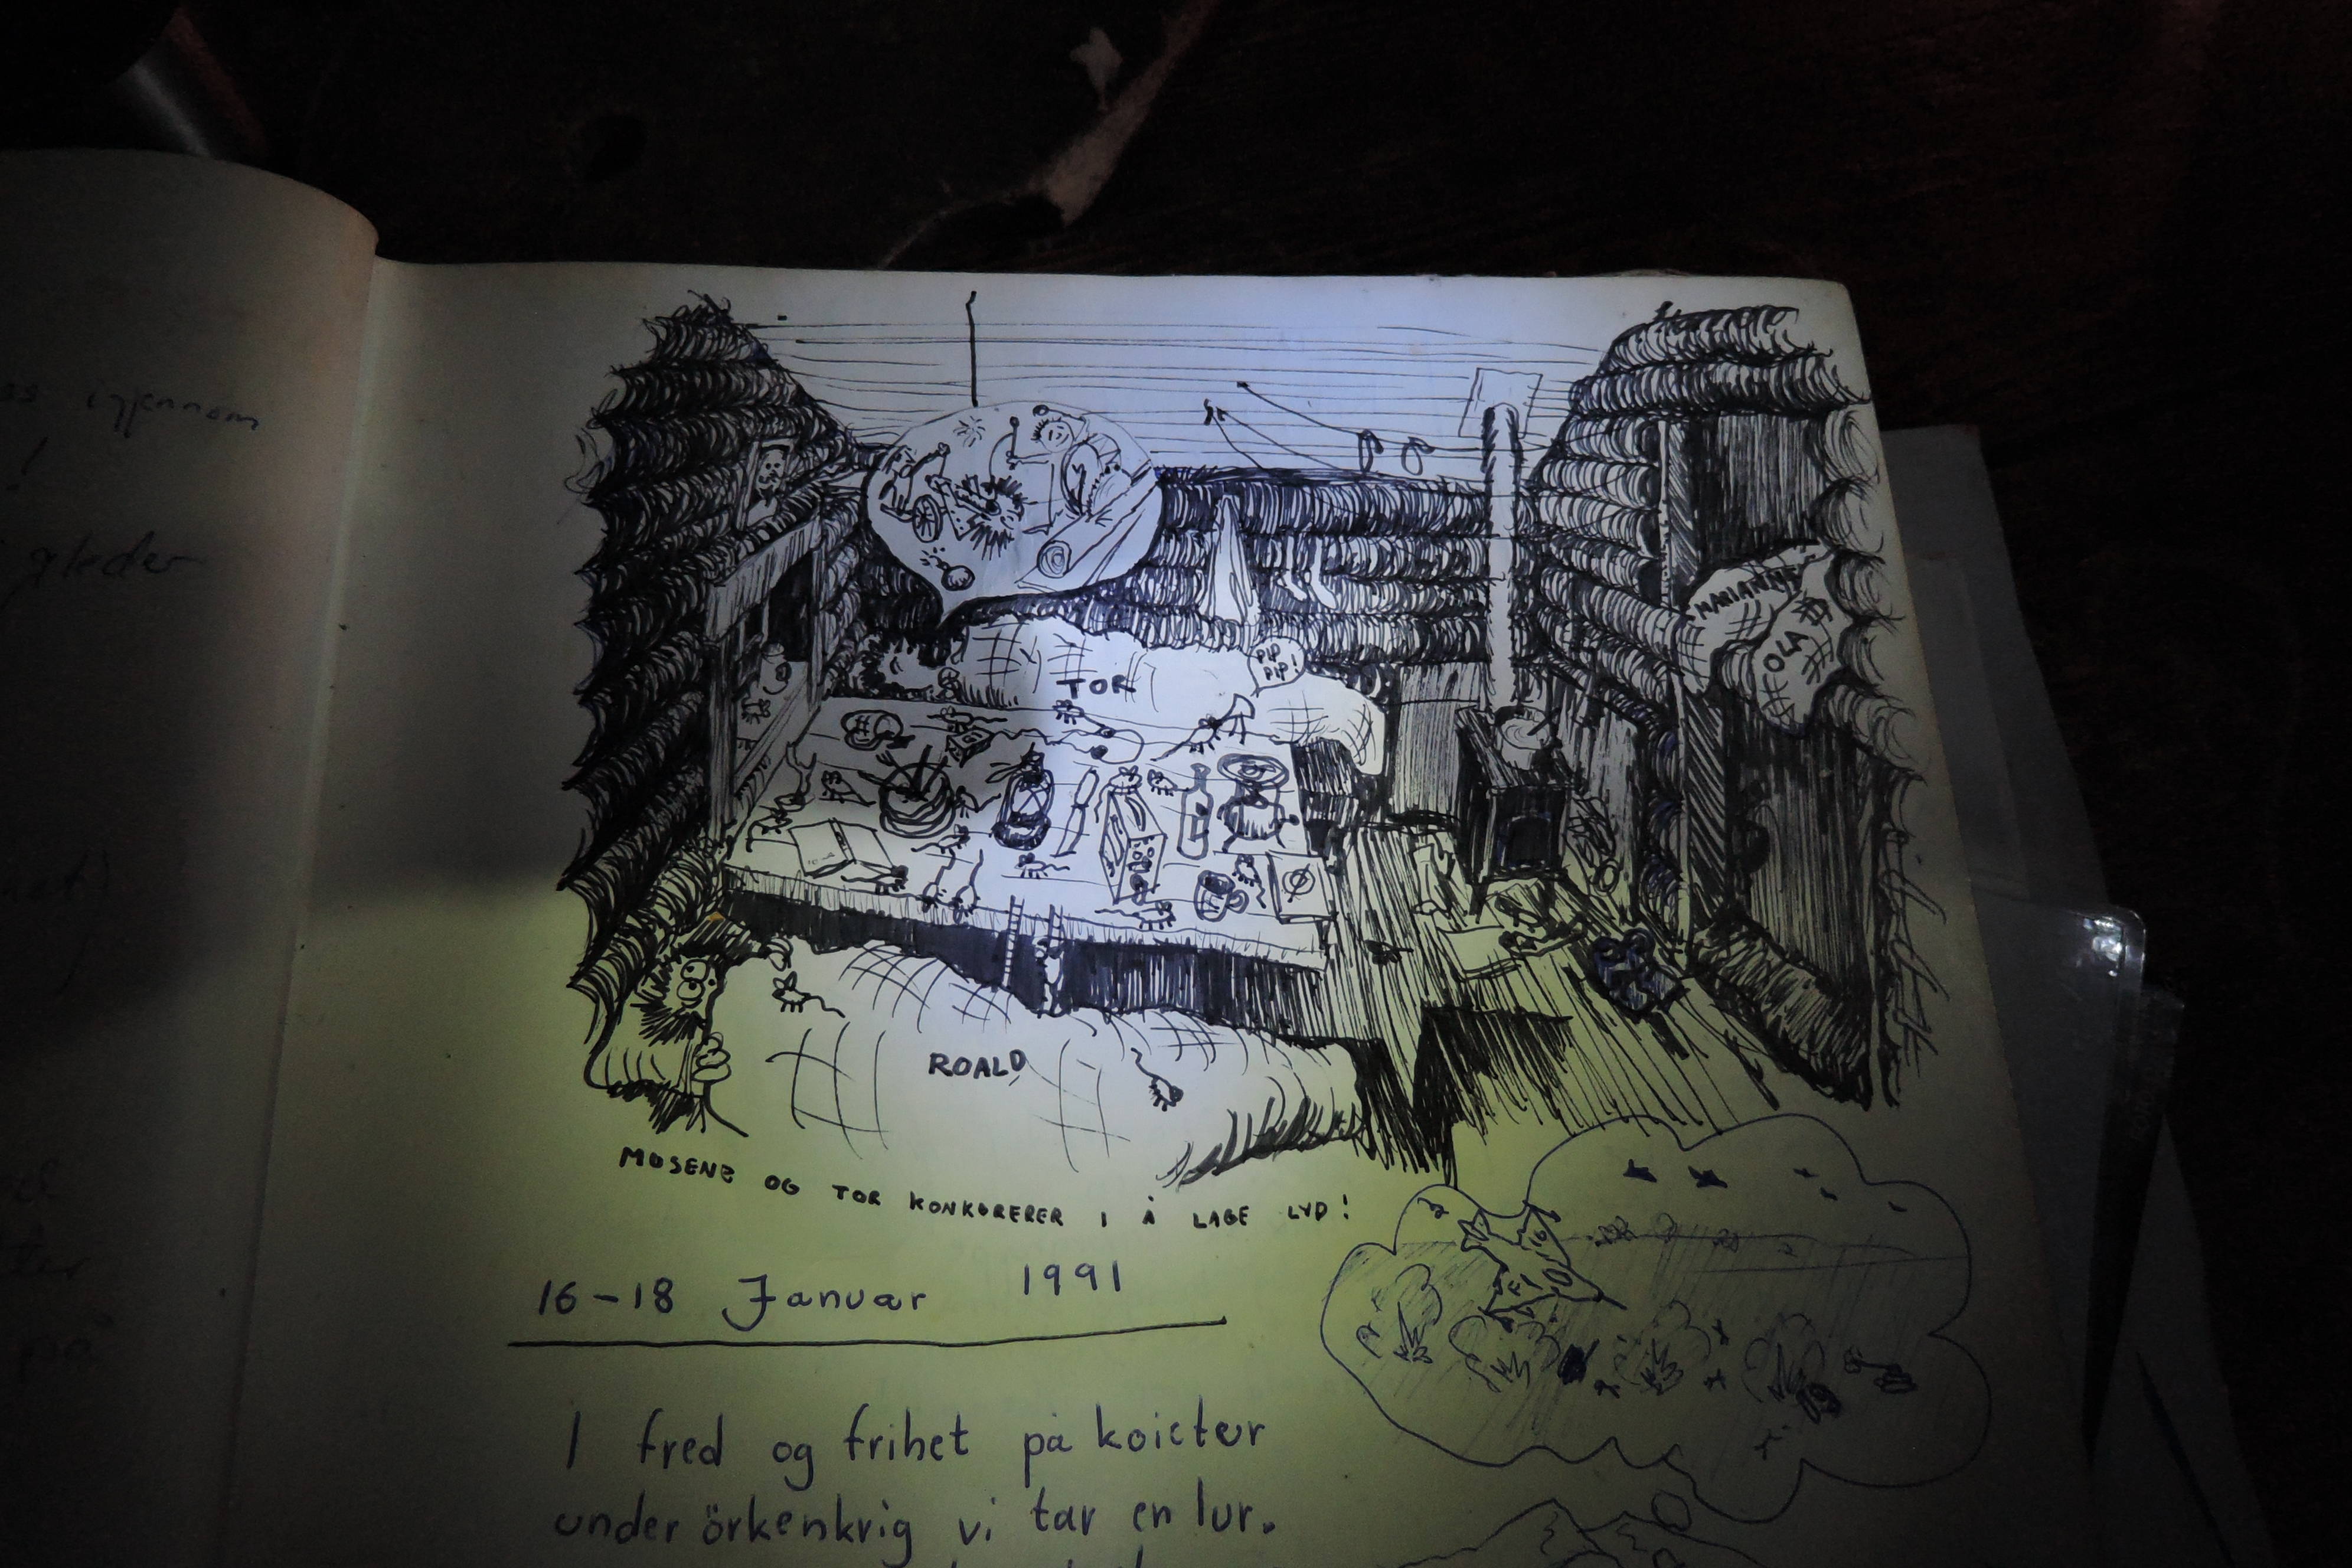 igjennom
!
gleder
MARIANNE
OLA
PIP
PIP!
TOR
ROALD
MUSENE OG TOR KONKURERER I Å LAGE LYD!
16-18 Januar 1991
I fred og frihet på koietur
under örkenkrig vi tar en lur.